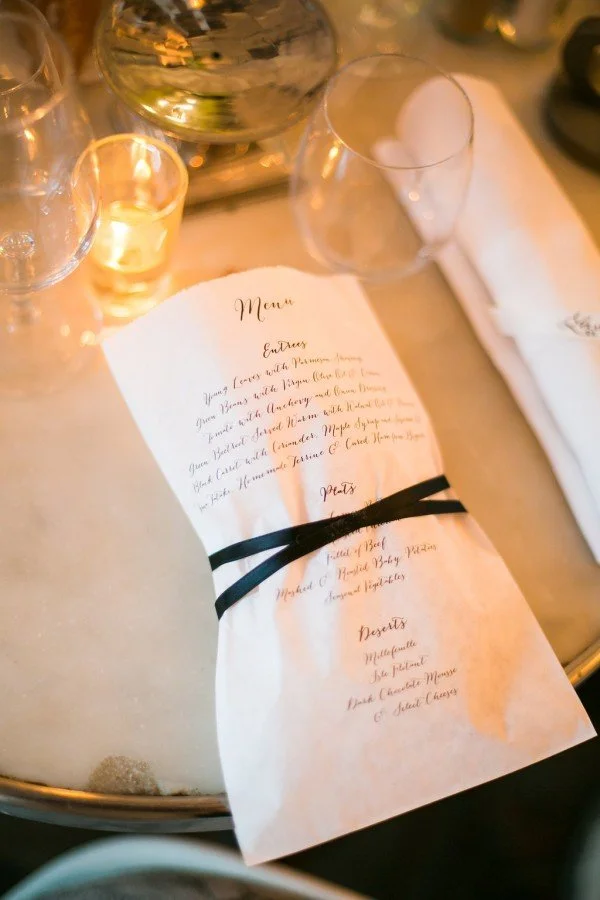 Menu
Entrees
Young Leaves with Parmesan Shavings
Green Beans with Virgin Olive Oil &
Tomato with Anchovy and Onion Dressing
Green Beetroot Served Warm with Walnut Oil &
Black Carrot with Coriander, Maple Syrup and
Homemade Terrine & Cured Ham from Bayonne
Plats
Fillet of Beef
Mashed & Roasted Baby Potatoes
Seasonal Vegetables
Deserts
Millefeuille
Isle Flotant
Dark Chocolate Mousse
& Select Cheeses